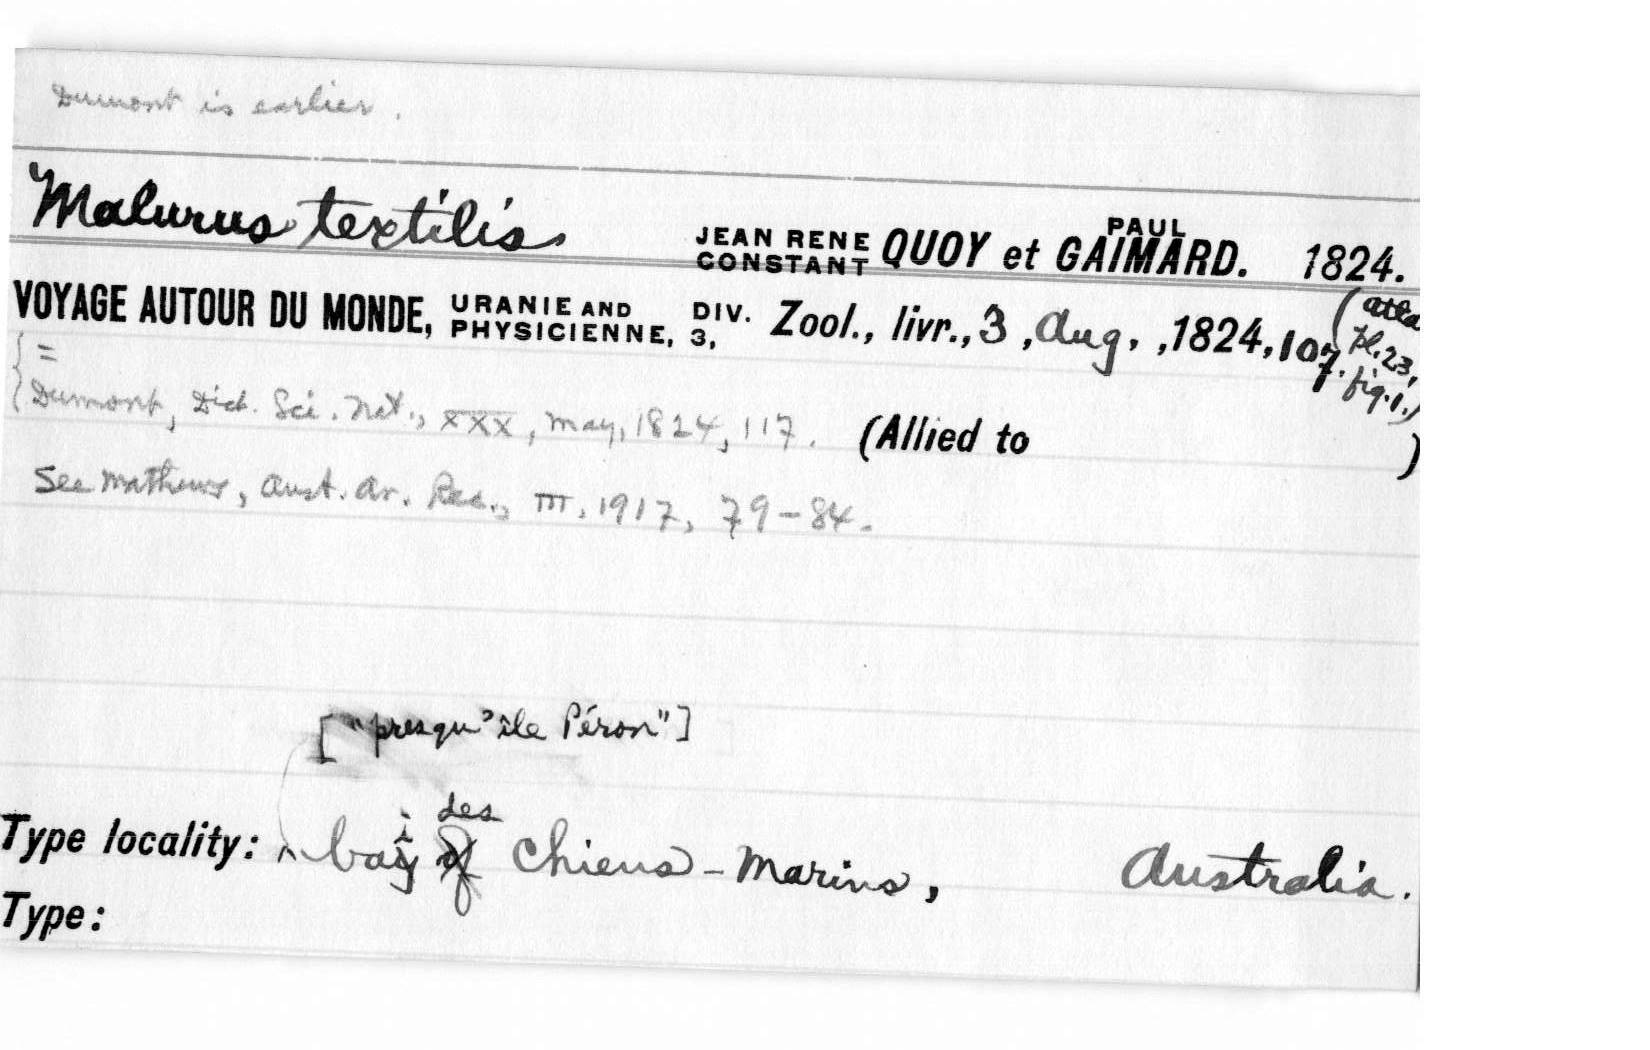 Dumont is earlier.
Malurus textilis JEAN RENE CONSTANT QUOY et PAUL GAIMARD. 1824.
VOYAGE AUTOUR DU MONDE, URANIE AND PHYSICIENNE, DIV. 3, Zool., livr., 3, Aug., 1824, 107. (atla
pl. 23,
fig. 1.)
=
Dumont, Dict. Sci. Nat., XXX, May, 1824, 117. (Allied to )
See Mathews, Aust. Av. Rec., III, 1917, 79-84.
["presqu'île Péron"]
des
Type locality: bai Chiens-Marins, Australia.
Type: